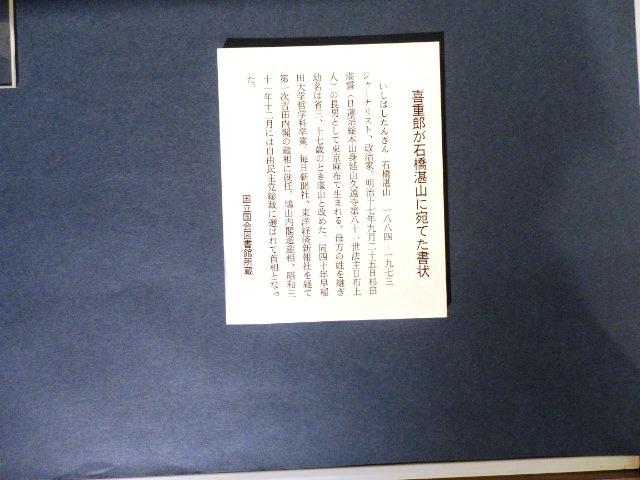 喜重郎が石橋湛山に宛てた書状
いしばしたんざん　石橋湛山　一八八四―一九七三
ジャーナリスト、政治家。明治十七年九月二十五日杉田
湛誓（日蓮宗総本山身延山久遠寺第八十一世法主日布上
人）の長男として東京麻布で生まれる。母方の姓を継ぎ
幼名は省三、十七歳のとき湛山と改めた。同四十年早稲
田大学哲学科卒業。毎日新聞社、東洋経済新報社を経て
第一次吉田内閣の蔵相に就任。鳩山内閣通産相、昭和三
十一年十二月には自由民主党総裁に選ばれて首相となっ
た。
国立国会図書館所蔵